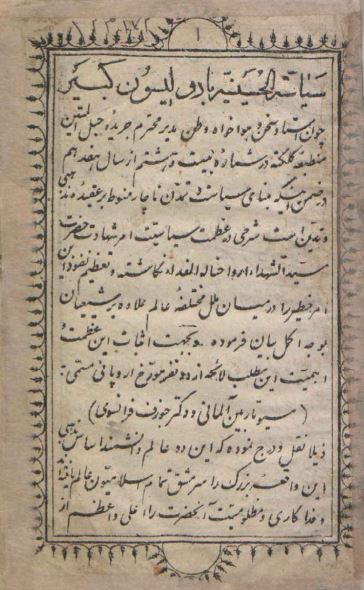 ۱
سیاسة الحسینیه یا رولیسیون کبیر
چون استاد سخن و هواخواه وطن مدیر محترم جریده حبل المتین
منطبعه کلکته در شماره بیست و هشتم از سال هفدهم
در ضمن اینکه بنای سیاست و تمدن ناچار منوط بر عقیده مذهبی
و تدین است شرحی در عظمت سیاسیت امر شهادت حضرت
سید الشهداء ارواحنا له الفداء نگاشته و تعظیم نفوذ این
امر خطیر را در میان ملل مختلفه عالم علاوه بر شیعیان
بوجه اکمل بیان فرموده و بجهت اثبات این عظمت و
اهمیت این مطلب لایحه از دو نفر مورخ اروپائی مسمی به
(مسیو ماربین آلمانی و دکتر جوزف فرانسوی)
ذیلا نقل و درج نموده که این دو عالم دانشمند اساس مذهبی
این واقعه بزرگ را سرمشق تمام سلامیون عالم یافته
و فداکاری و مظلومیت آنحضرت را اعلی و اعظم از